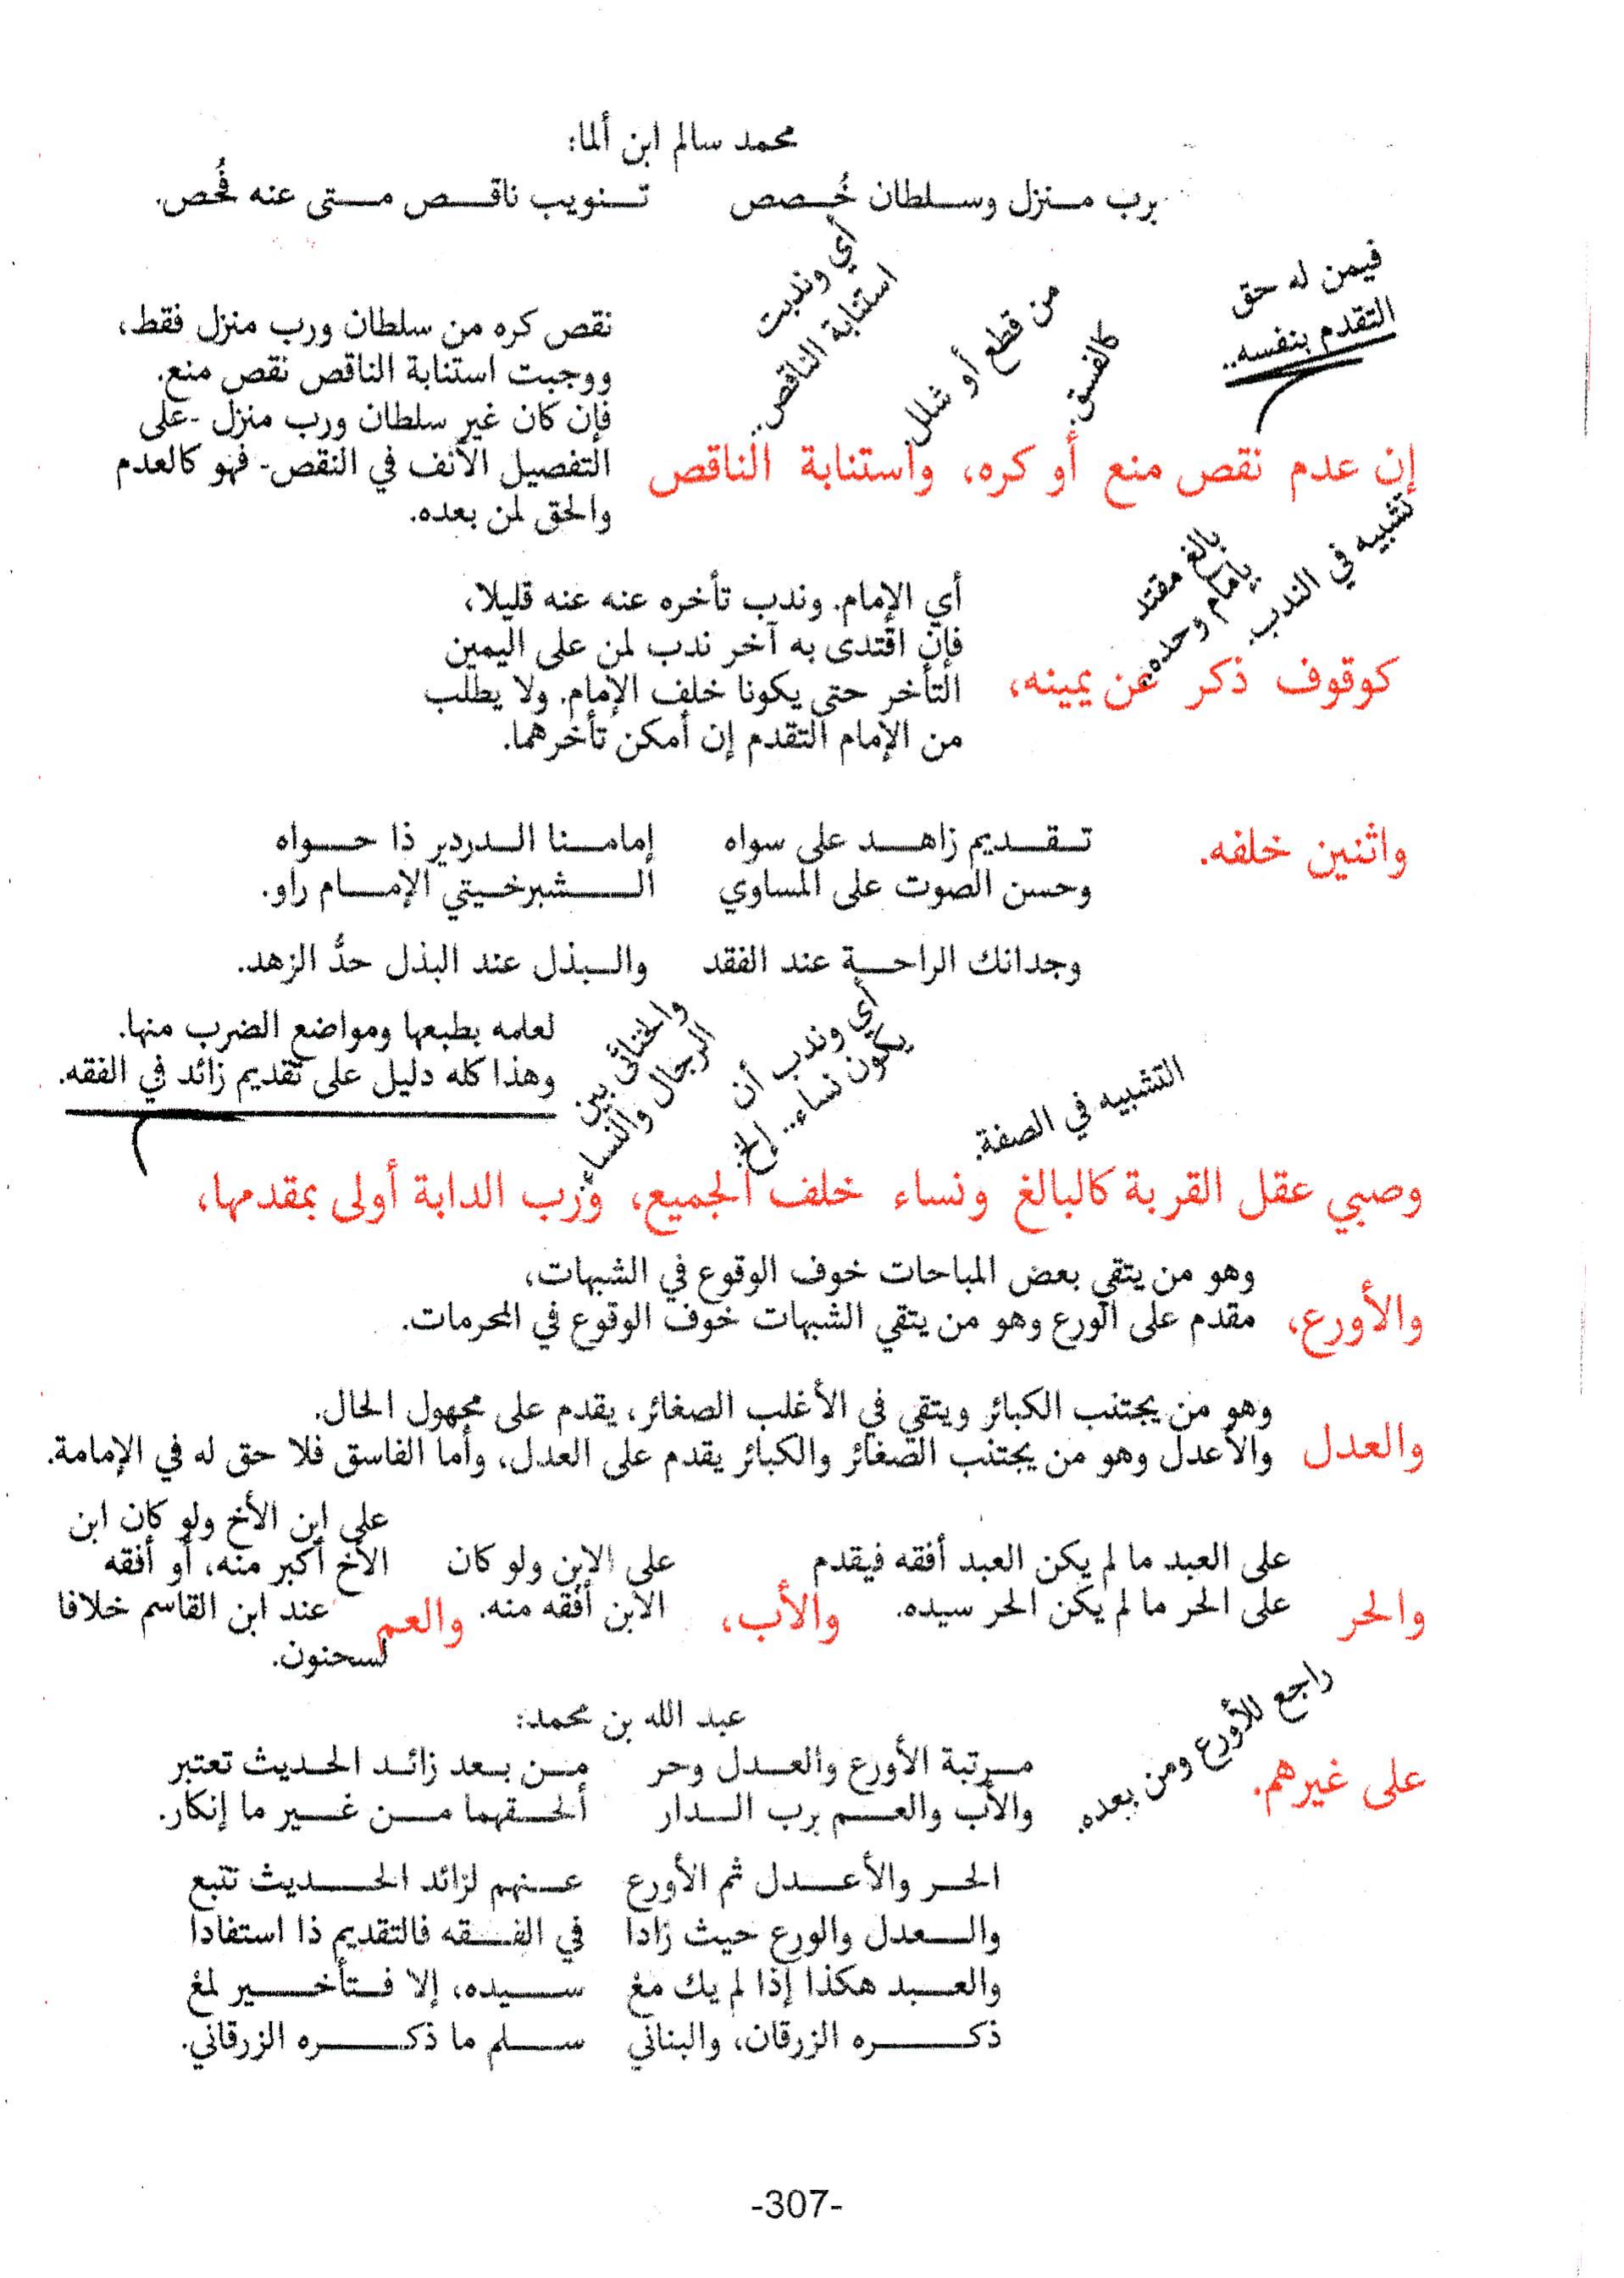 محمد سالم ابن ألما:
برب منزل وسلطان خُصص تنويب ناقص متى عنه فُحص.
فيمن له حق
التقدم بنفسه..
كالفسق.
من قطع أو شلل
أي وندبت
استنابة الناقص..
نقص كره من سلطان ورب منزل فقط،
ووجبت استنابة الناقص نقص منع.
فإن كان غير سلطان ورب منزل -على
التفصيل الآنف في النقص- فهو كالعدم
والحق لمن بعده.
إن عدم نقص منع أو كره، واستنابة الناقص
تشبيه في الندب.
بالغ مقتد
بإمام وحده.
كوقوف ذكر عن يمينه،
أي الإمام. وندب تأخره عنه عنه قليلا،
فإن اقتدى به آخر ندب لمن على اليمين
التأخر حتى يكونا خلف الإمام. ولا يطلب
من الإمام التقدم إن أمكن تأخرهما.
واثنين خلفه.
تقديم زاهد على سواه إمامنا الدردير ذا حواه
وحسن الصوت على المساوي الشبرخيتي الإمام راو.
وجدانك الراحة عند الفقد والبذل عند البذل حدُّ الزهد.
التشبيه في الصفة.
أي وندب أن
يكون نساء.. إلخ.
والخناثى بين
الرجال والنساء.
لعلمه بطبعها ومواضع الضرب منها.
وهذا كله دليل على تقديم زائد في الفقه.
وصبي عقل القربة كالبالغ ونساء خلف الجميع، ورب الدابة أولى بمقدمها،
والأورع،
وهو من يتقي بعض المباحات خوف الوقوع في الشبهات،
مقدم على الورع وهو من يتقي الشبهات خوف الوقوع في المحرمات.
والعدل
وهو من يجتنب الكبائر ويتقي في الأغلب الصغائر، يقدم على مجهول الحال.
والأعدل وهو من يجتنب الصغائر والكبائر يقدم على العدل، وأما الفاسق فلا حق له في الإمامة.
والحر
على العبد ما لم يكن العبد أفقه فيقدم
على الحر ما لم يكن الحر سيده.
والأب،
على الابن ولو كان
الابن أفقه منه.
والعم
على ابن الأخ ولو كان ابن
الأخ أكبر منه، أو أفقه
عند ابن القاسم خلافا
لسحنون.
راجع للأورع ومن بعده.
على غيرهم.
عبد الله بن محمد:
مرتبة الأورع والعدل وحر من بعد زائد الحديث تعتبر
والأب والعم برب الدار ألحقهما من غير ما إنكار.
الحر والأعدل ثم الأورع عنهم لزائد الحديث تتبع
والعدل والورع حيث زادا في الفقه فالتقديم ذا استفادا
والعبد هكذا إذا لم يك معْ سيده، إلا فتأخير لمعْ
ذكره الزرقان، والبناني سلم ما ذكره الزرقاني.
-307-